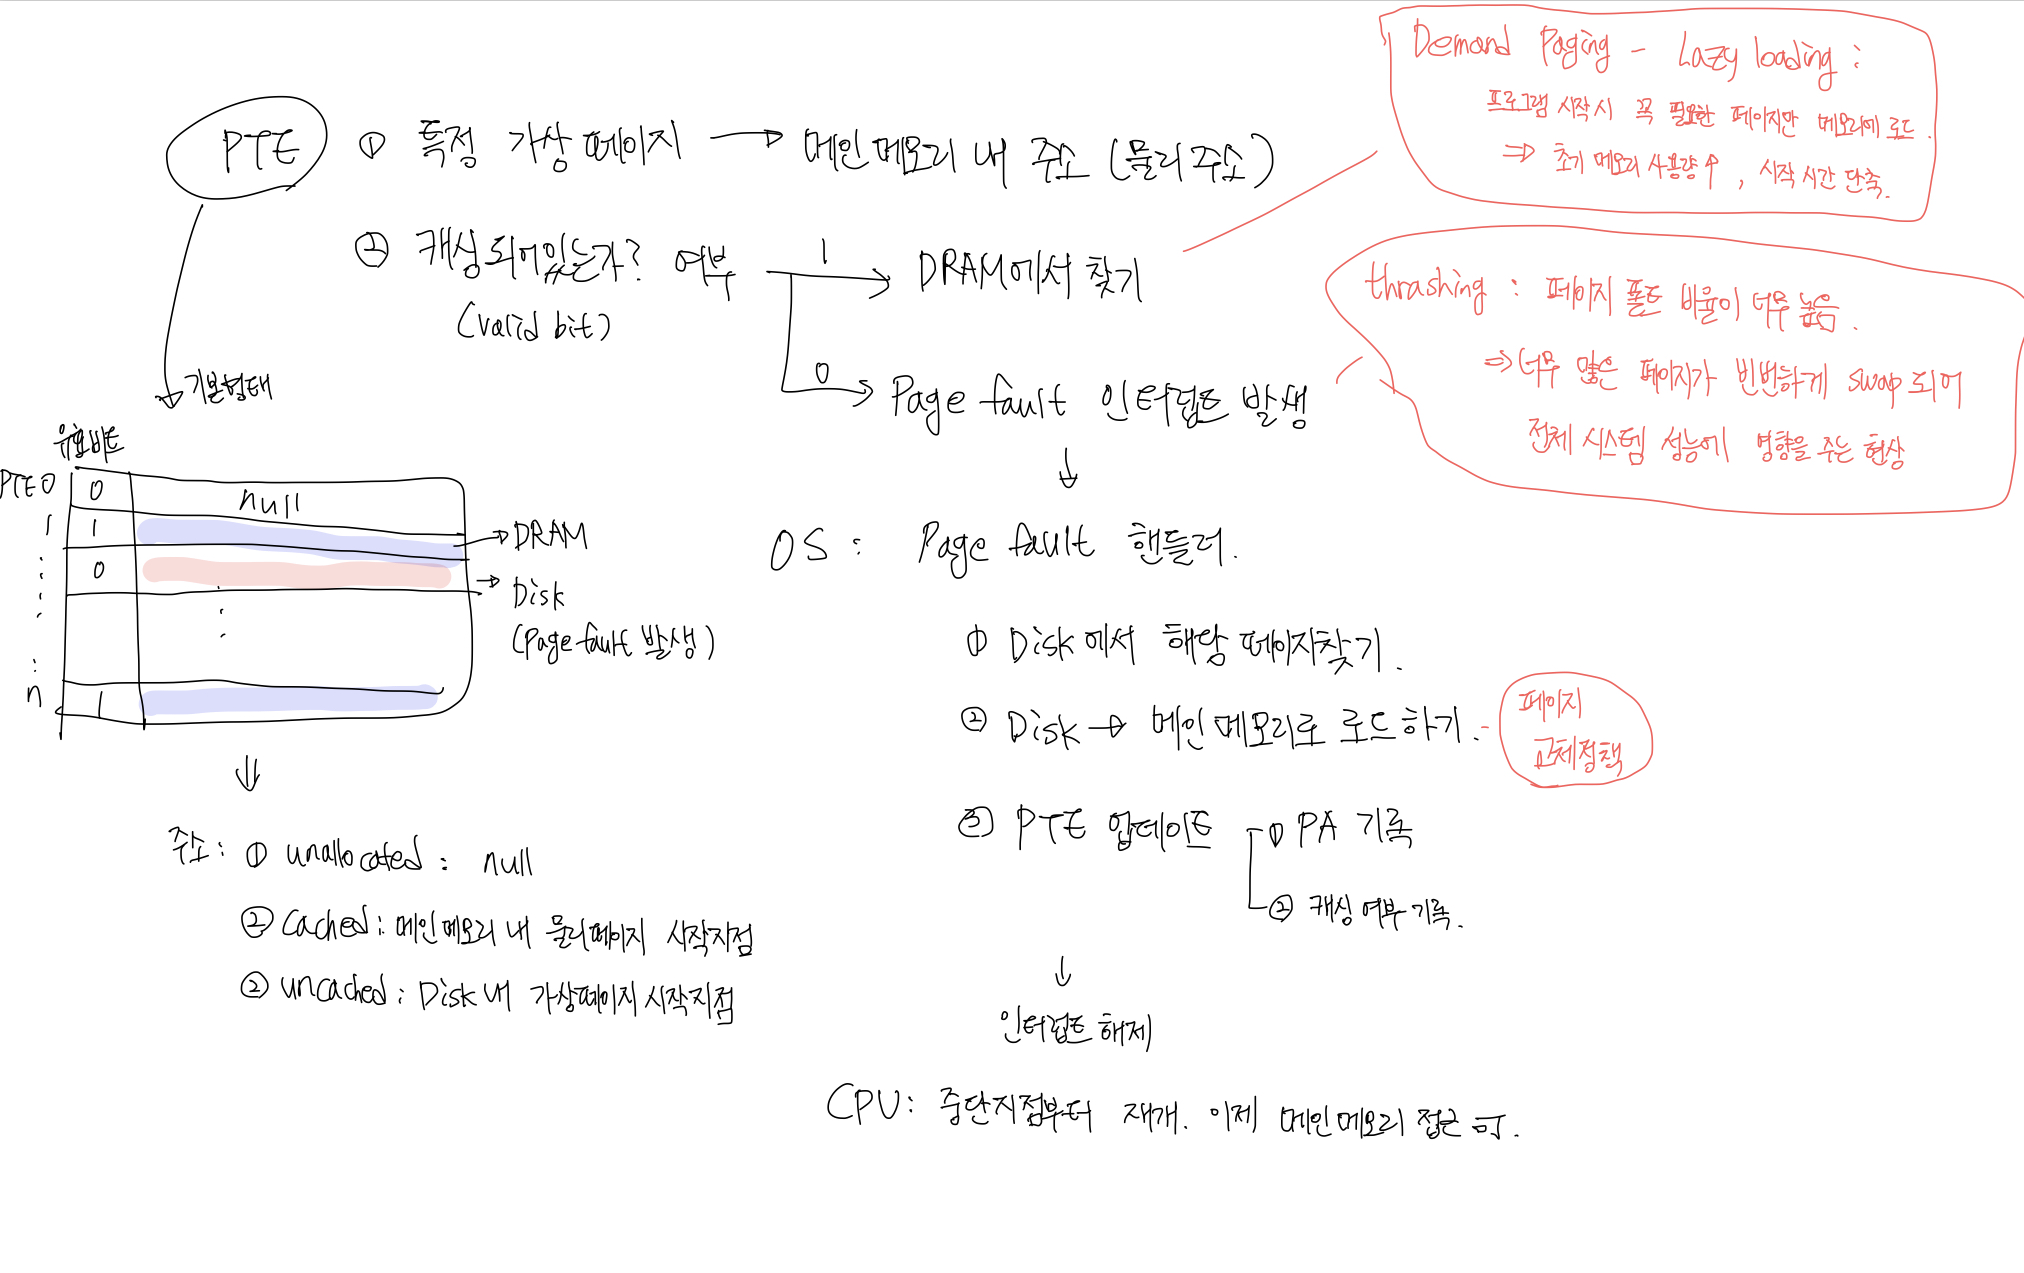 Demand Paging - Lazy loading :
프로그램 시작시 꼭 필요한 페이지만 메모리에 로드.
⇒ 초기 메모리 사용량↑, 시작 시간 단축.
PTE ① 특정 가상페이지 → 메인메모리 내 주소 (물리주소)
② 캐싱되어있는가? 여부 1 → DRAM에서 찾기
(valid bit)
0 → Page fault 인터럽트 발생
thrashing : 페이지 폴트 비율이 너무 높음.
⇒ 너무 많은 페이지가 빈번하게 swap되어
전체 시스템 성능에 영향을 주는 현상
↓
기본형태
유효비트
PTE 0 0 null
1 1 → DRAM
⋮ 0 → Disk
(Page fault 발생)
⋮
n 1
⇓
주소 : ① unallocated : null
② cached : 메인메모리 내 물리페이지 시작지점
② uncached : Disk 내 가상페이지 시작지점
OS : Page fault 핸들러.
① Disk에서 해당 페이지찾기.
② Disk → 메인메모리로 로드하기. - 페이지
교체정책
③ PTE 업데이트 ① PA 기록
② 캐싱 여부 기록.
↓
인터럽트 해제
CPU : 중단지점부터 재개. 이제 메인메모리 접근 可.